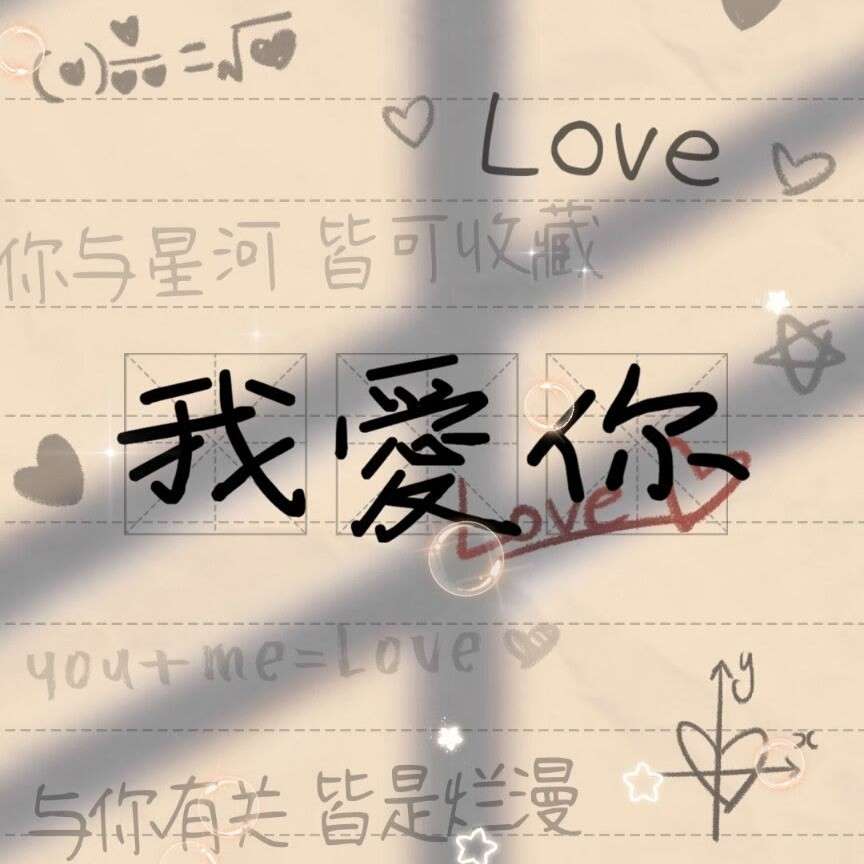 Love
你与星河 皆可收藏
我愛你
Love
you+me=Love
y
x
与你有关 皆是烂漫